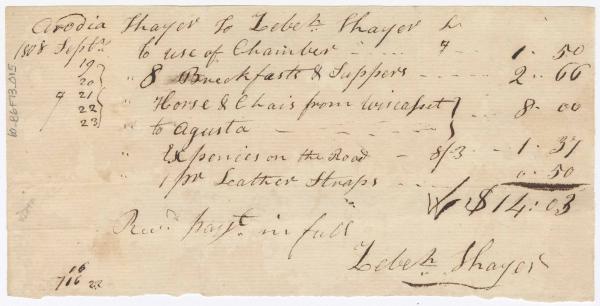 Arodia Thayer To Zebeh. Thayer Dr
1808 Septr. to use of Chamber 9 1.50
19
20 " 8 Breakfasts & Suppers 2..66
9 21 " Horse & Chais from Wiscasset 8.00
22
23 to Agusta
" Expencies on the Road 8/3 1.37
" 1 pr Leather Straps 0.50
$14.03
Recd. payt. in full
Zebeh. Thayer
16
716 22
10.88F13.D15